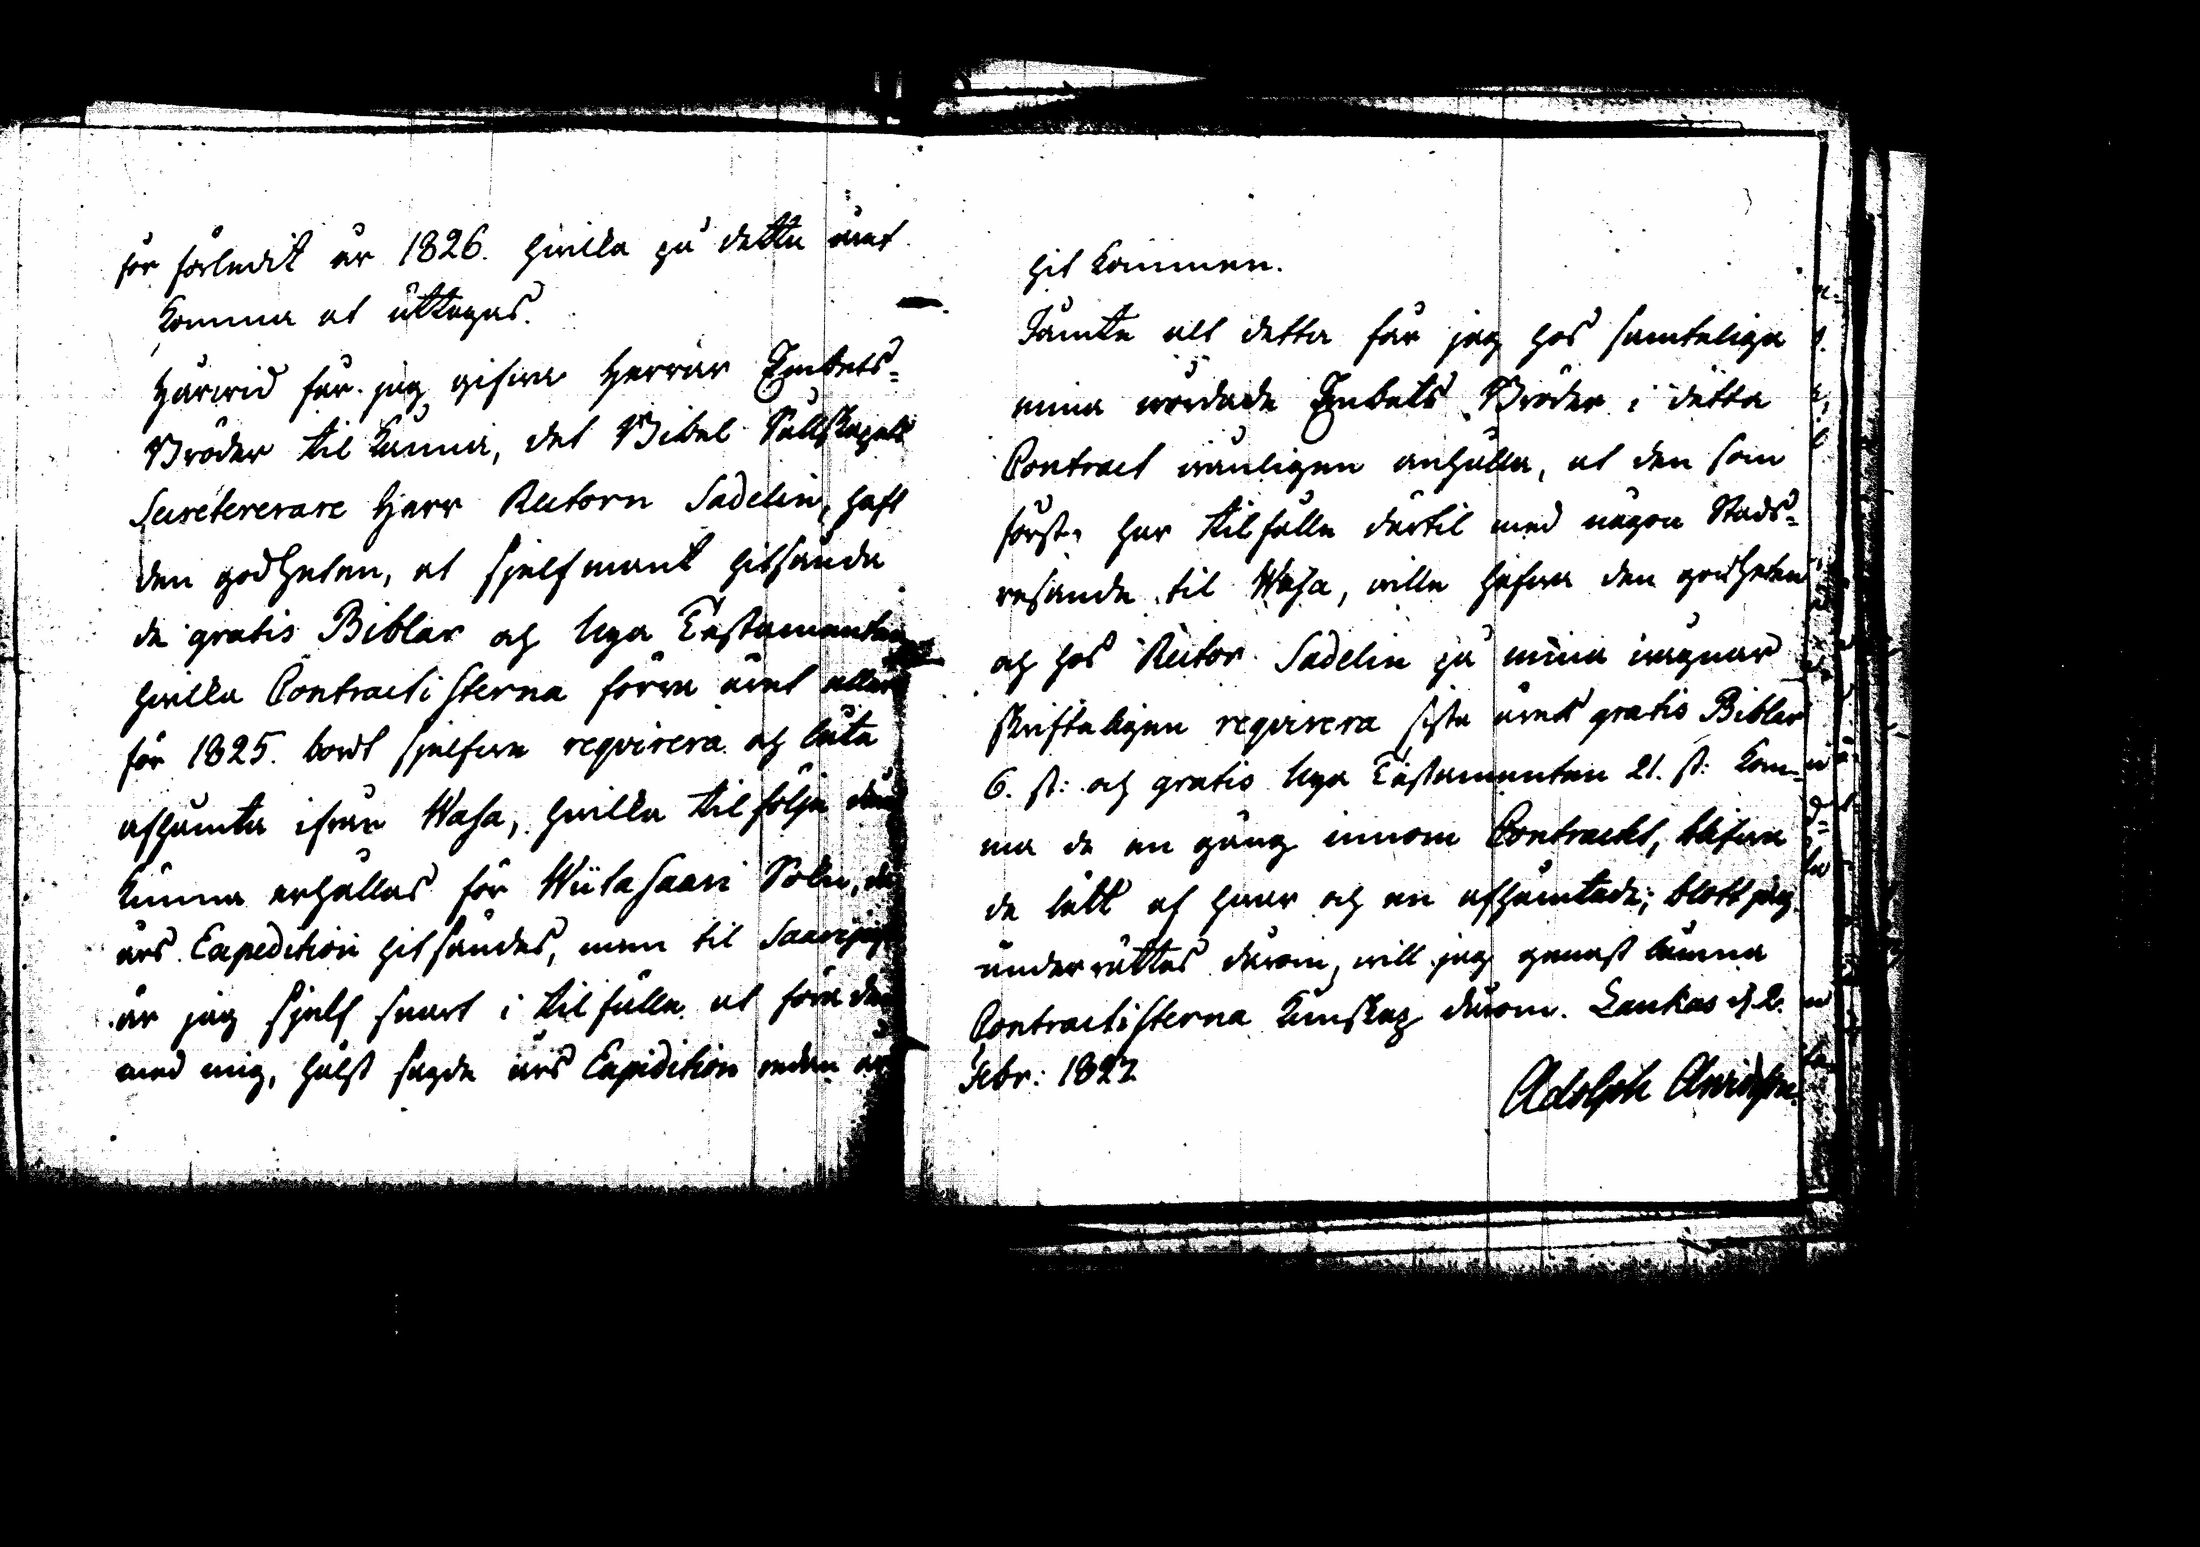 för förledit år 1826. hvilka på detta sätt
komma at uttagas.
Härvid får jag gifva Herrar Embets=
Bröder til känna, det Bibel Sällskapets
Secreterare Herr Rectorn Sadelin, haft
den godheten, at sjelfmant hitsända
de gratis Biblar och Nya Testamenten
hvilka Contractisterna förra året allena
för 1825. bordt sjelfva requirera och låta
afhämta ifrån Wasa, hvilka til följe
kunna erhållas för Wiitasaari Sokn, då
års Expedition hitsändes, men til Saarijärvi
är jag sjelf snart i tilfälle at föra den
med mig, hälst sagde års Expedition redan är
hit kommen.
Jämte alt detta får jag hos samtelige
mina wördade Embets Bröder i detta
Contract wänligen anhålla, at den som
först har tilfälle därtil med någon Stads=
resande til Wasa, wille hafva den godheten
och hos Rector Sadelin på mina wägnar
skrifteligen requirera sista årets gratis Biblar
6. st: och gratis Nya Testamenten 21. st: Kom=
ma de en gång innom Contractet, blifva
de lätt af hvar och en afhämtade; blott jag
underrättas därom, will jag genast lämna
Contractisterna kunskap därom. Laukas d. 2.
Febr: 1827
Adolph Arvidsson.